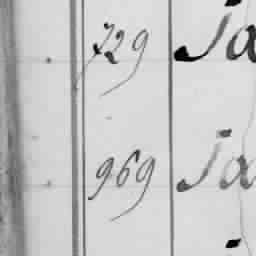 729 Ja
969 Ja